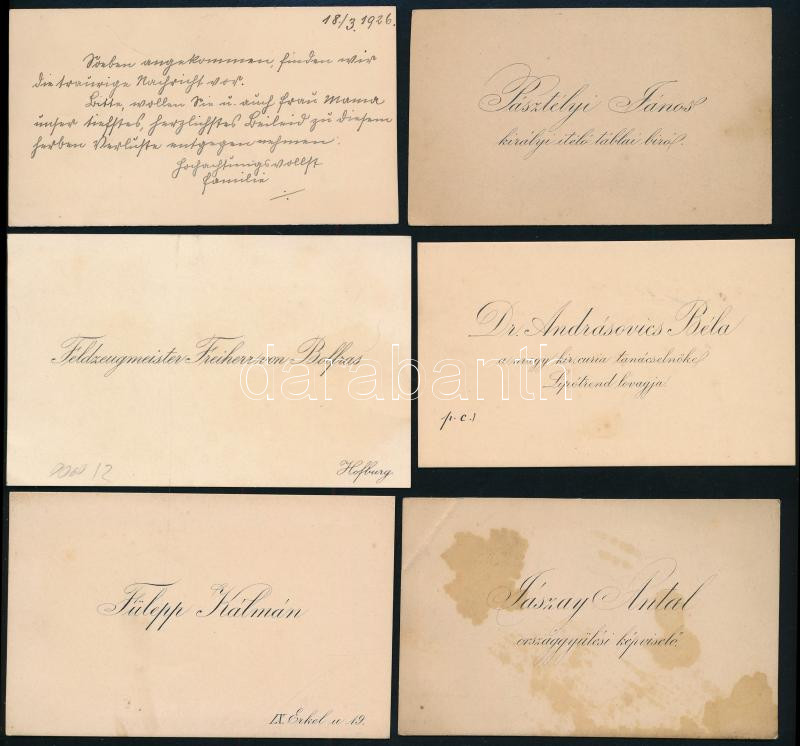 18./3. 1926.
Soeben angekommen, finden wir
die traurige Nachricht vor.
Bitte, wollen Sie u. auch Frau Mama
unser tiefstes, herzlichstes Beileid zu diesem
herben Verluste entgegen nehmen.
Hochachtungsvollst
Familie
Pásztélyi János
királyi itélő táblai biró.
Feldzeugmeister Freiherr von Bolfras
Hofburg.
Dr. Andrásovics Béla
a m. kir. curia tanácselnöke
Lipótrend lovagja.
p. c.
Fülepp Kálmán
IX. Erkel u 19.
Jászay Antal
országgyülési képviselő.
darabanth